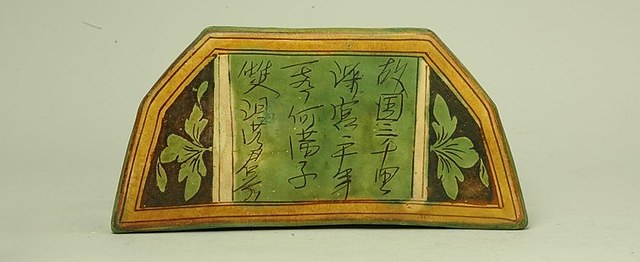 故国三千里
深宮二十年
一声何满子
雙泪落君前